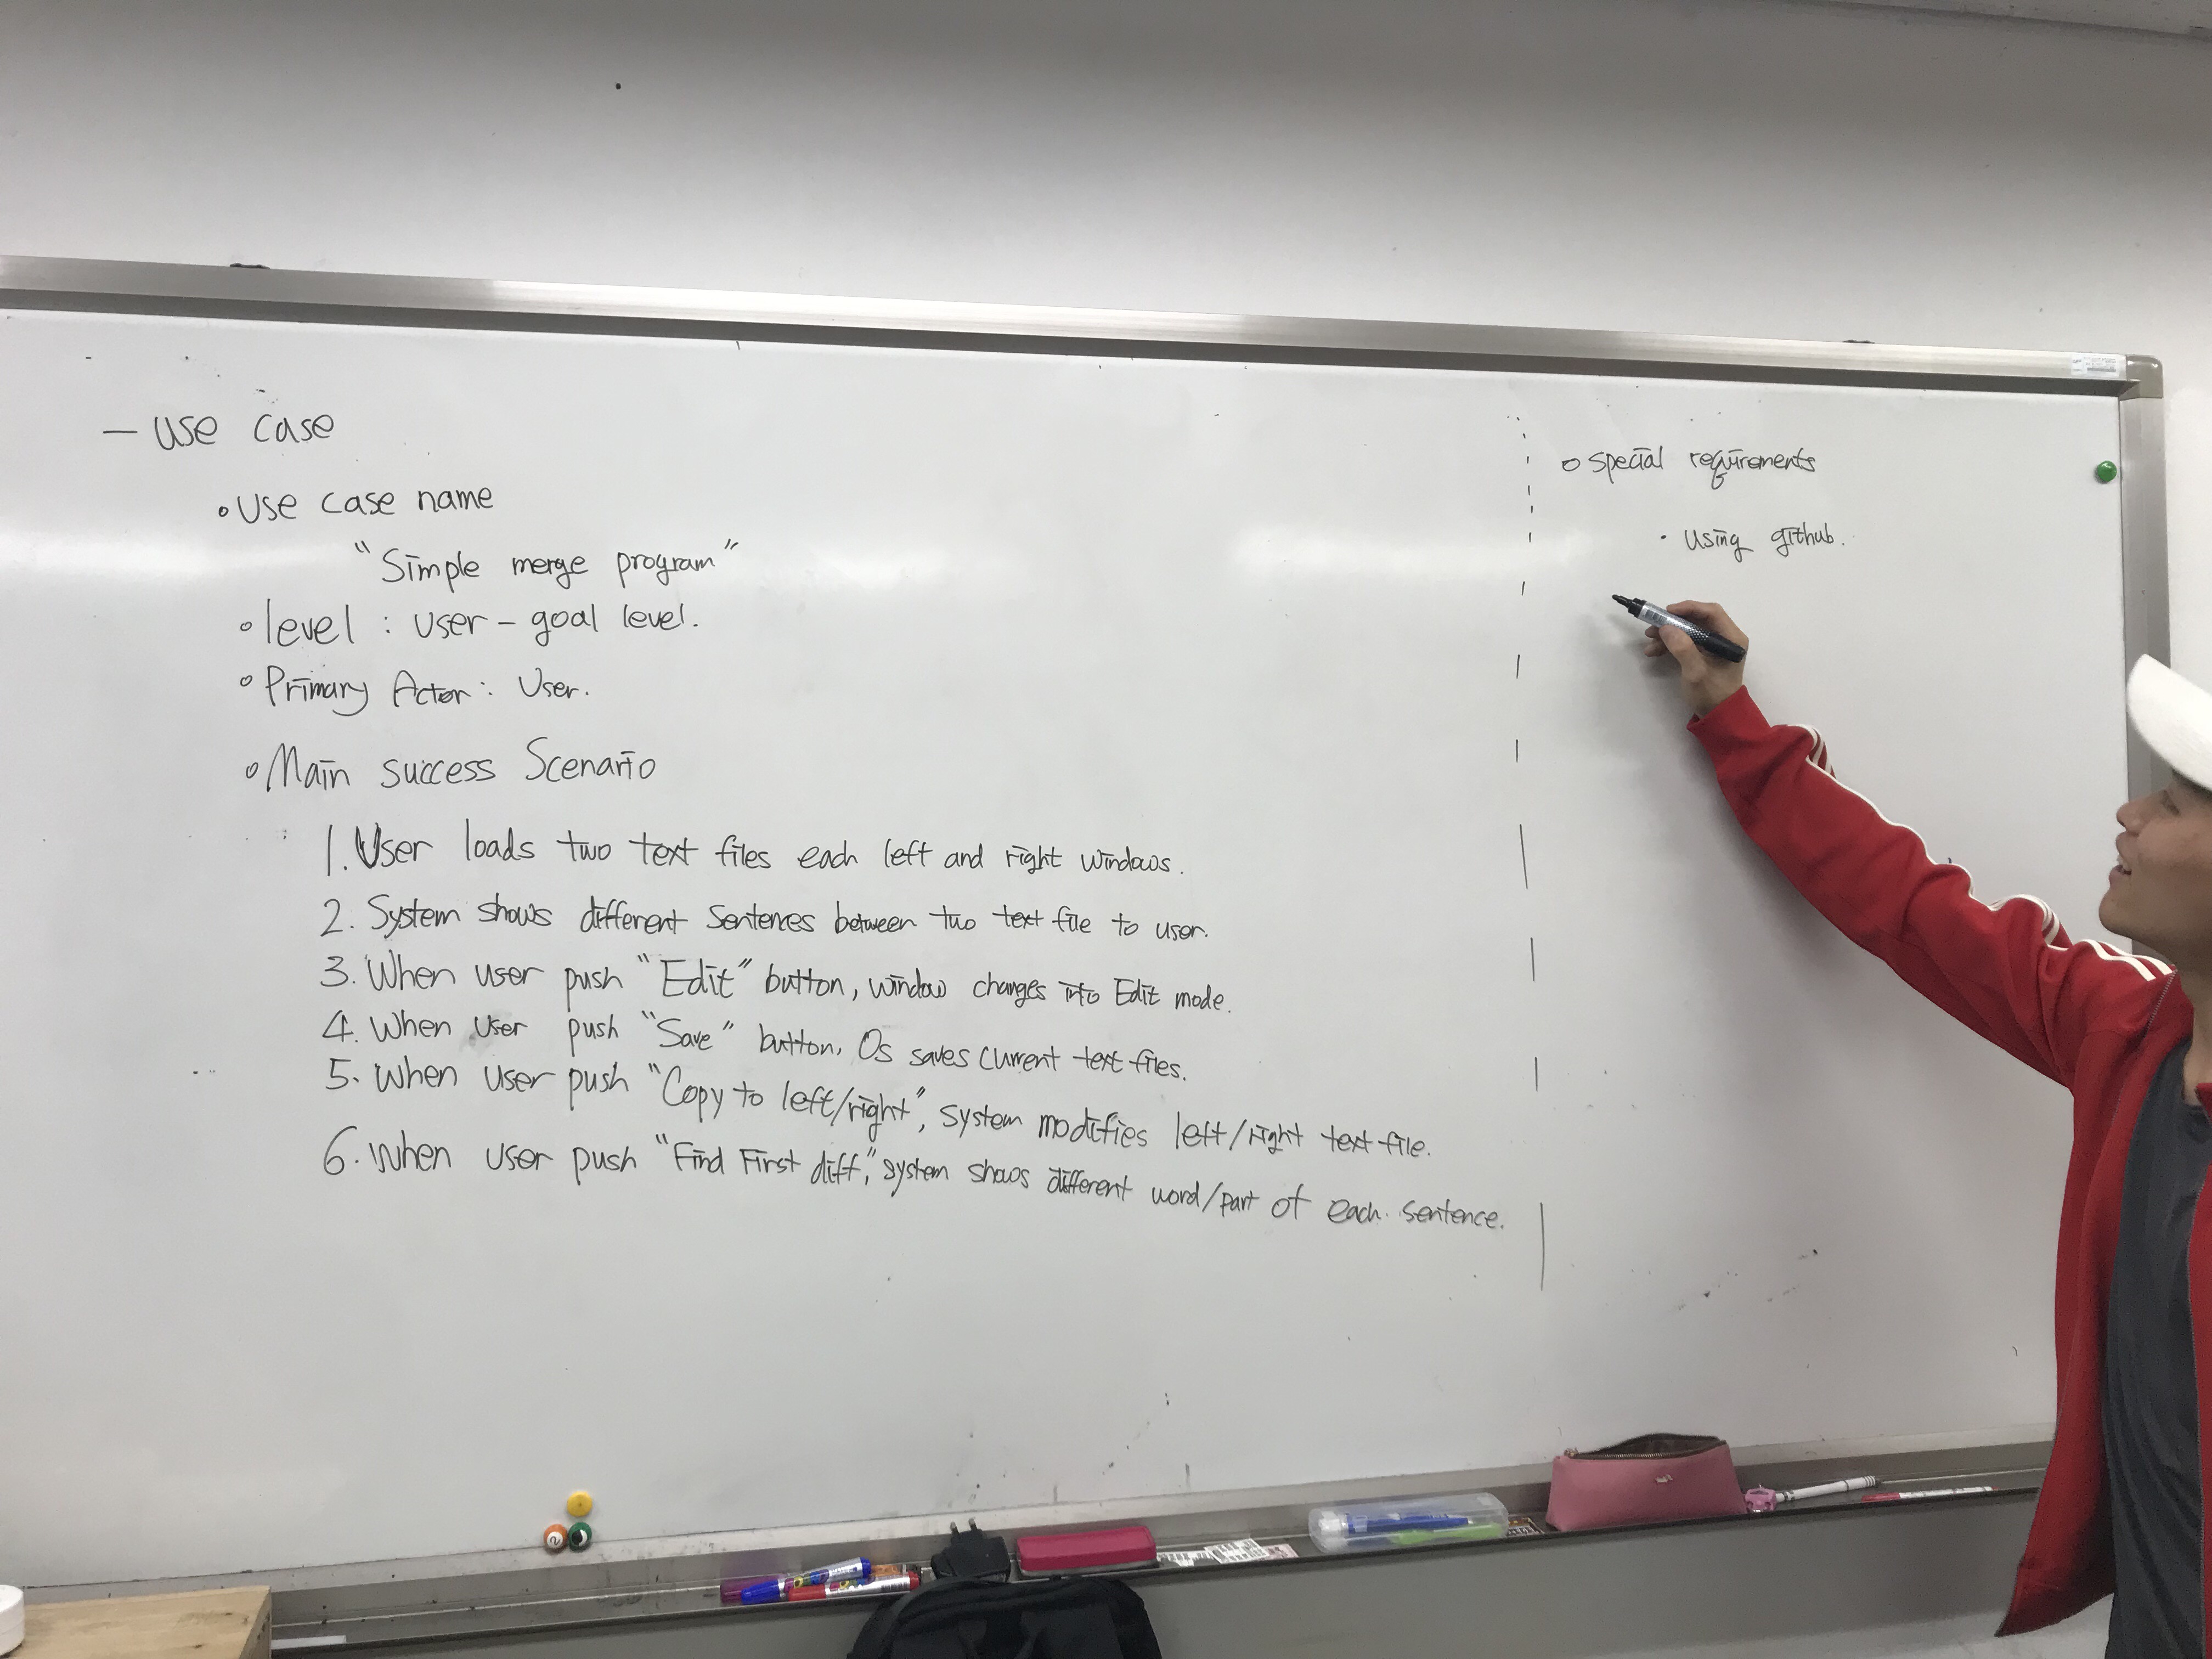 — use case
• Use case name
"Simple merge program"
• level : user - goal level.
• Primary Actor : User.
• Main success Scenario
1. User loads two text files each left and right windows.
2. System shows different sentences between two text file to user.
3. When user push "Edit" button, window changes into Edit mode.
4. When user push "Save" button, Os saves current text files.
5. When user push "Copy to left/right", system modifies left/right text file.
6. When user push "Find First diff," system shows different word/part of each sentence.
o special requirements
• Using github.
2